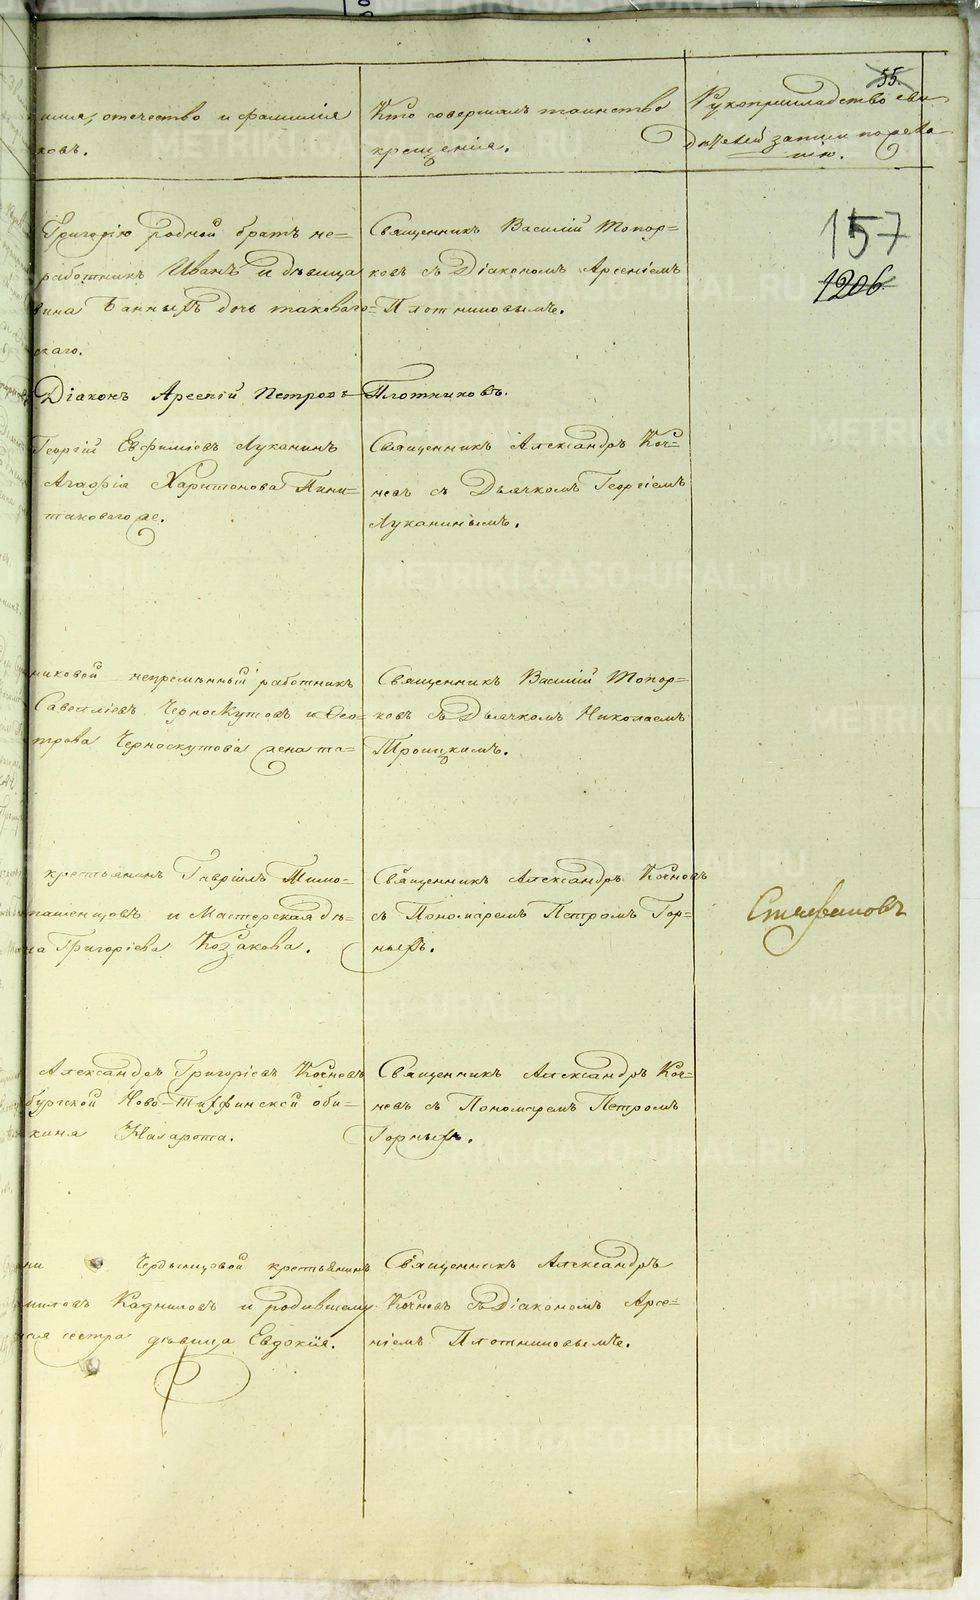 55.
имя, отечество и фамилія
ковъ.
Кто совершалъ таинство
крещенія.
Рукоприкладство сви-
дѣтелей записи по жела-
нію.
157
1206
Григорію родной братъ не-
работникъ Иванъ и дѣвица
Банныхъ дочь таковаго-
скаго.
Священникъ Василій Топор-
ковъ съ Діакономъ Арсеніемъ
Плотниковымъ.
Діаконъ Арсеній Петровъ Плотниковъ.
Георгій Евфиміевъ Луканинъ
Агафія Харитонова
таковаго же.
Священникъ Александръ Коч-
невъ съ Дьячкомъ Георгіемъ
Луканинымъ.
никовой непремѣнный работникъ
Савватіевъ Черноскутовъ и
Черноскутова жена та-
Священникъ Василій Топор-
ковъ съ Дьячкомъ Николаемъ
Троицкимъ.
крестьянинъ Гавріилъ Тимо-
и Мастерская дѣ-
Григорьева Козакова.
Священникъ Александръ Кочневъ
съ Пономаремъ Петромъ Гор-
ныхъ.
Стефановъ
Александръ Григоріевъ Кочневъ
бургской Ново-Тихвинской оби-
хиня Назарета.
Священникъ Александръ Коч-
невъ съ Пономаремъ Петромъ
Горныхъ.
крестьянинъ
Кадниловъ и родившему-
сестра дѣвица Евдокія.
Священникъ Александръ
Кочневъ съ Діакономъ Арсе-
ніемъ Плотниковымъ.
METRIKI.GASO-URAL.RU